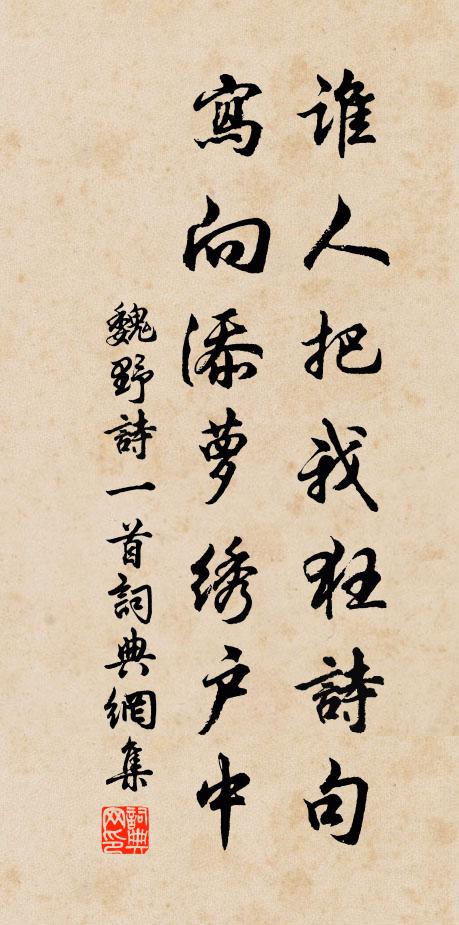 誰人把我狂詩句
寫向添夢绣户中
魏野詩一首詞典網集
詞典网印